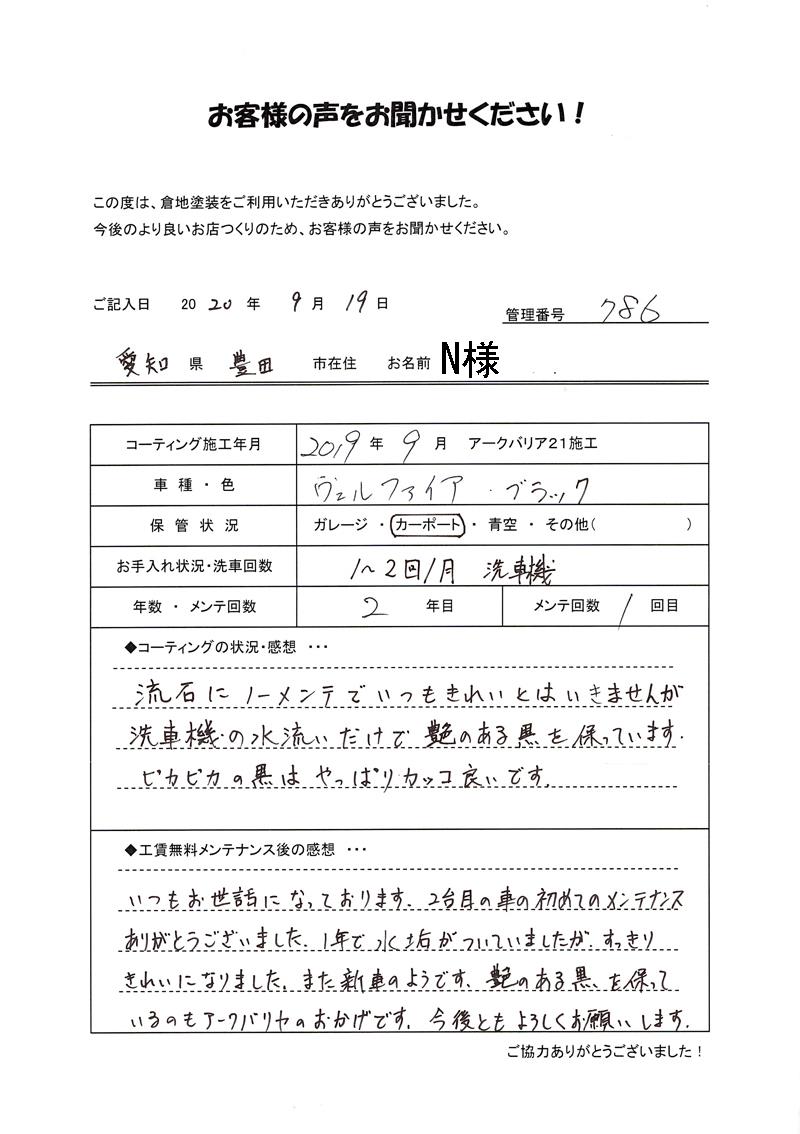 お客様の声をお聞かせください！
この度は、倉地塗装をご利用いただきありがとうございました。
今後のより良いお店つくりのため、お客様の声をお聞かせください。
ご記入日 2020年 9月 19日
管理番号 786
愛知 県 豊田 市在住 お名前 N様
コーティング施工年月 2019年 9月 アークバリア21施工
車種・色 ヴェルファイア・ブラック
保管状況 ガレージ・カーポート・青空・その他( )
お手入れ状況・洗車回数 1～2回/月 洗車機
年数・メンテ回数 2 年目 メンテ回数 1 回目
◆コーティングの状況・感想 …
流石にノーメンテでいつもきれいとはいきませんが
洗車機の水流いだけで艶のある黒を保っています.
ピカピカの黒はやっぱりカッコ良いです.
◆工賃無料メンテナンス後の感想 …
いつもお世話になっております. 2台目の車の初めてのメンテナンス
ありがとうございました. 1年で水垢がついていましたが、すっきり
きれいになりました. また新車のようです. 艶のある黒、を保って
いるのもアークバリヤのおかげです. 今後ともよろしくお願いします.
ご協力ありがとうございました！